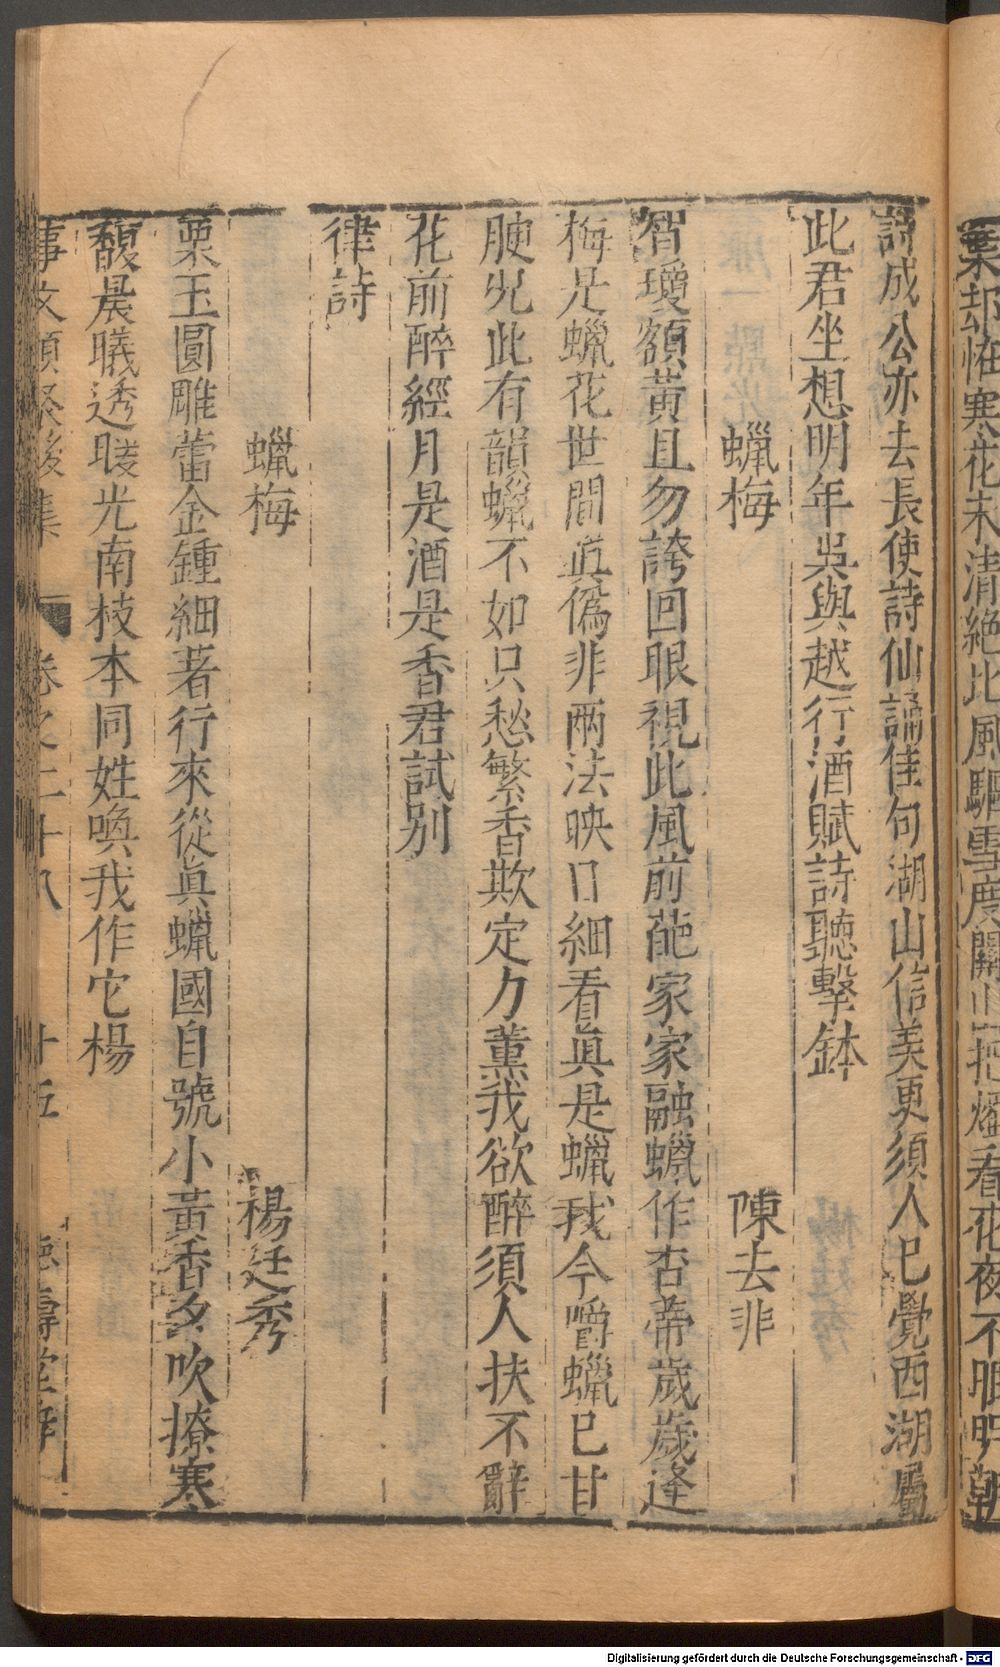 葉却恠寒花未清絶比風驅雪度關山把燭看花夜不眠明朝
詩成公亦去長使詩仙誦佳句湖山信美更須人已覺西湖屬
此君坐想明年吳與越行酒賦詩聽擊鉢
蠟梅 陳去非
智瓊額黃且勿誇回眼視此風前葩家家融蠟作杏蒂歲歲逢
梅是蠟花世間眞僞非兩法映日細看眞是蠟我今嚼蠟已甘
腴况此有韻蠟不如只愁繁香欺定力薰我欲醉須人扶不辭
花前醉經月是酒是香君試别
律詩
蠟梅 楊廷秀
栗玉圓雕蕾金鍾細著行來從眞蠟國自號小黃香夕吹撩寒
馥晨曦透暖光南枝本同姓喚我作它楊
事文類聚後集 卷之二十八 十五 德壽堂梓
Digitalisierung gefördert durch die Deutsche Forschungsgemeinschaft - DFG